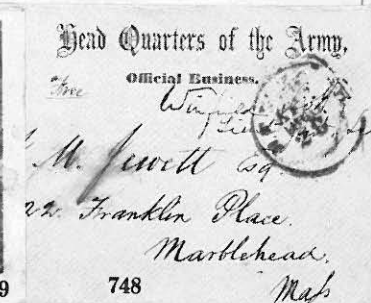 Head Quarters of the Army,
Official Business.
Free
Winfield
M. Jewett Esq
22 Franklin Place.
Marblehead.
Mass
9 748